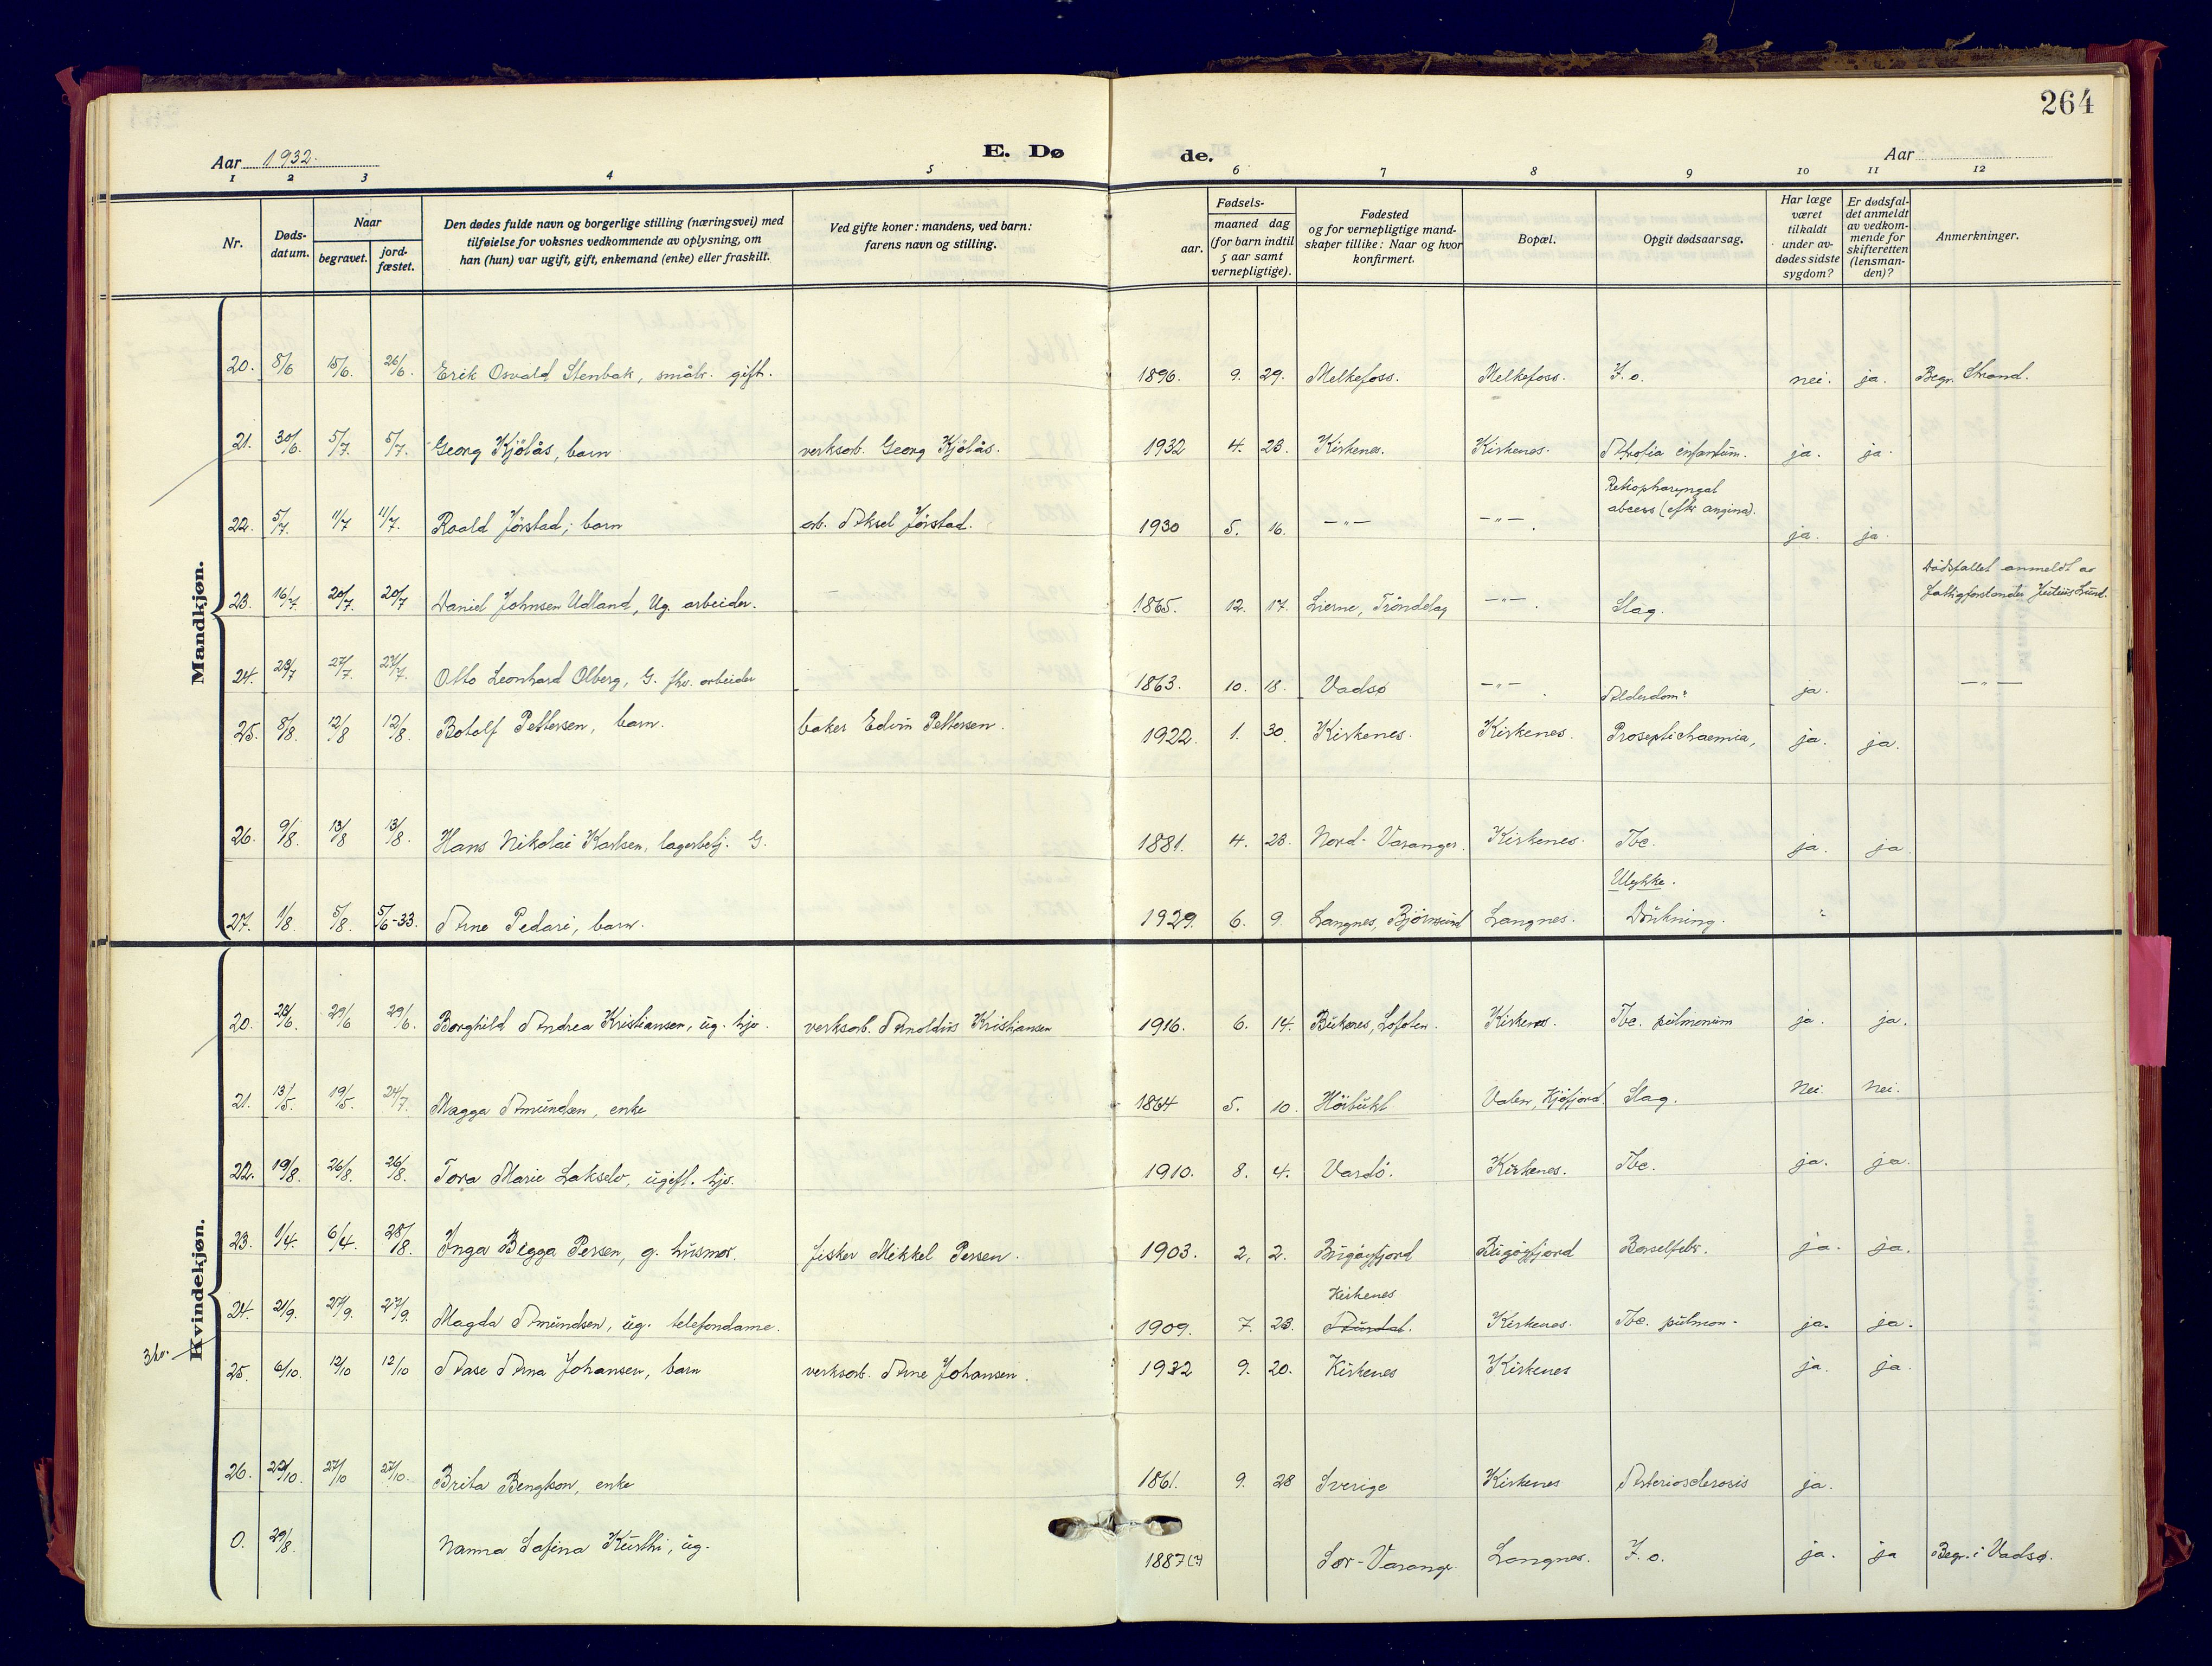 264
Aar 1932. E. Dø de. Aar
1 2 3 4 5 6 7 8 9 10 11 12
Nr. Døds-datum. Naar begravet. jord-fæstet. Den dødes fulde navn og borgerlige stilling (næringsvei) med tilføielse for voksnes vedkommende av oplysning, om han (hun) var ugift, gift, enkemand (enke) eller fraskilt. Ved gifte koner: mandens, ved barn: farens navn og stilling. Fødsels- aar. maaned dag (for barn indtil 5 aar samt vernepligtige). Fødested og for vernepligtige mand-skaper tillike: Naar og hvor konfirmert. Bopæl. Opgit dødsaarsag. Har læge været tilkaldt under av-dødes sidste sygdom? Er dødsfal-det anmeldt av vedkom-mende for skifteretten (lensman-den)? Anmerkninger.
Mandkjøn.
20. 8/6 15/6. 26/6. Erik Osvald Stenbak, småbr. gift. 1896. 9. 29. Melkefoss. Melkefoss. F. o. nei. ja. Begr. Strand.
21. 30/6. 5/7. 5/7. Georg Kjölås, barn verksarb. Georg Kjölås. 1932 4. 23. Kirkenes. Kirkenes. Atrofia infantum. ja. ja.
22. 5/7. 11/7 11/7. Roald Jörstad, barn arb. Aksel Jörstad. 1930 5. 16. —"— —"—. Retropharyngal abcess (eftr angina). ja. ja.
23. 16/7. 20/7. 20/7 Daniel Johnsen Udland, Ug. arbeider. 1865. 12. 17. Lierne, Tröndelag —"—. Slag. Dödsfallet anmeldt av fattigforstander Julius Lund.
24. 23/7 27/7. 27/7. Otto Leonhard Olberg, G. fhv. arbeider 1863. 10. 18. Vadsö —"—. Alderdom. ja. —"—
25. 8/8. 12/8 12/8. Botolf Pettersen, barn. baker Edvin Pettersen. 1922. 1. 30. Kirkenes. Kirkenes. Proseptichaemia, ja. ja.
26. 9/8. 13/8 13/8. Hans Nikolai Karlsen, lagerbetj. G. 1881. 4. 23. Nord-Varanger. Kirkenes. Tbc. ja. ja
27. 1/8. 5/8. 5/6-33. Arne Pedari, barn. 1929. 6. 9. Langnes, Björnsund Langnes. Ulykke. Drukning. "
Kvindekjøn.
20. 23/6. 29/6 29/6. Borghild Andrea Kristiansen, ug. hjv. verksarb. Arnoldus Kristiansen 1916. 6. 14. Buknes, Lofoten. Kirkenes. Tbc. pulmonum ja. ja.
21. 13/5. 19/5. 24/7. Magga Amundsen, enke 1864 5. 10. Hörbukt Valen, Kjöfjord. Slag. Nei. nei.
22. 19/8. 26/8. 26/8. Tora Marie Lakselv, ugift. hjv. 1910. 8. 4. Vardö. Kirkenes. Tbc. ja. ja.
23. 1/4. 6/4. 28/8. Inga Bigga Persen, g. husmor. fisker Mikkel Persen. 1903. 2. 2. Bugöyfjord Bugöyfjord Barselfebr. ja. ja.
24. 21/9. 27/9. 27/9. Magda Amundsen, ug. telefondame. 1909. 7. 23. Kirkenes Kirkenes. Tbc. pulmon. ja. ja.
25. 6/10. 12/10 12/10 Aase Arna Johansen, barn verksarb. Arne Johansen. 1932 9. 20. Kirkenes Kirkenes ja. ja.
26. 22/10. 27/10 27/10. Brita Bengtson, enke 1861. 9. 28 Sverige Kirkenes Arteriosclerosis ja.
0. 29/8. Nanna Safina Kurthi, ug. 1887 (?) Sør-Varange. Langnes. F. o. ja. ja Begr. i Vadsø.